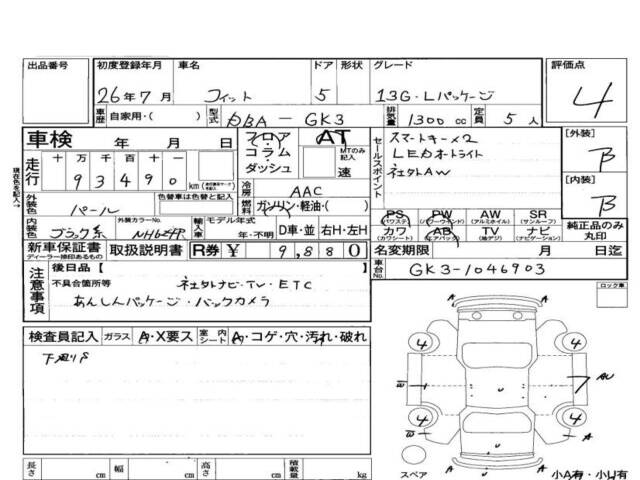 出品番号 初度登録年月 車名 ドア 形状 グレード 評価点
26年7月 フィット 5 13G・Lパッケージ 4
車歴 自家用・( ) 型式 DBA-GK3 排気量 1300cc 定員 5人
車検 年 月 日 フロア コラム ダッシュ AT MTのみ記入 速
セールスポイント スマートキー×2
LEDオートライト
社外AW
[外装] B
[内装] B
現在色を記入→
走行 十 万 千 百 十 一
93490 km
冷房 AAC
外装色 パール 色替車は色替と記入 燃料 ガソリン・軽油・( )
内装色 ブラック系 外装カラーNo. 輸入車 モデル年式 年・不明 D車・並 右H・左H
PS (パワステ) PW (パワーウインド) AW (アルミホイル) SR (サンルーフ)
カワ (カワシート) AB (エアバック) TV (地デジ) ナビ (ナビゲーション)
純正品のみ丸印
新車保証書 ディーラー捺印あるもの 取扱説明書 R券 ¥ 9,880
名変期限 月 日迄
注意事項 後日品【
車台No. GK3-1046903
不具合箇所等 社外ナビ・TV・ETC
あんしんパッケージ・バックカメラ
ロック車
検査員記入 ガラス A・X要ス 室内シート A・コゲ・穴・汚れ・破れ
4 4
W AU
4 4
W
スペア 小A有・小U有
長さ cm 幅 cm 高さ cm 積載量 kg